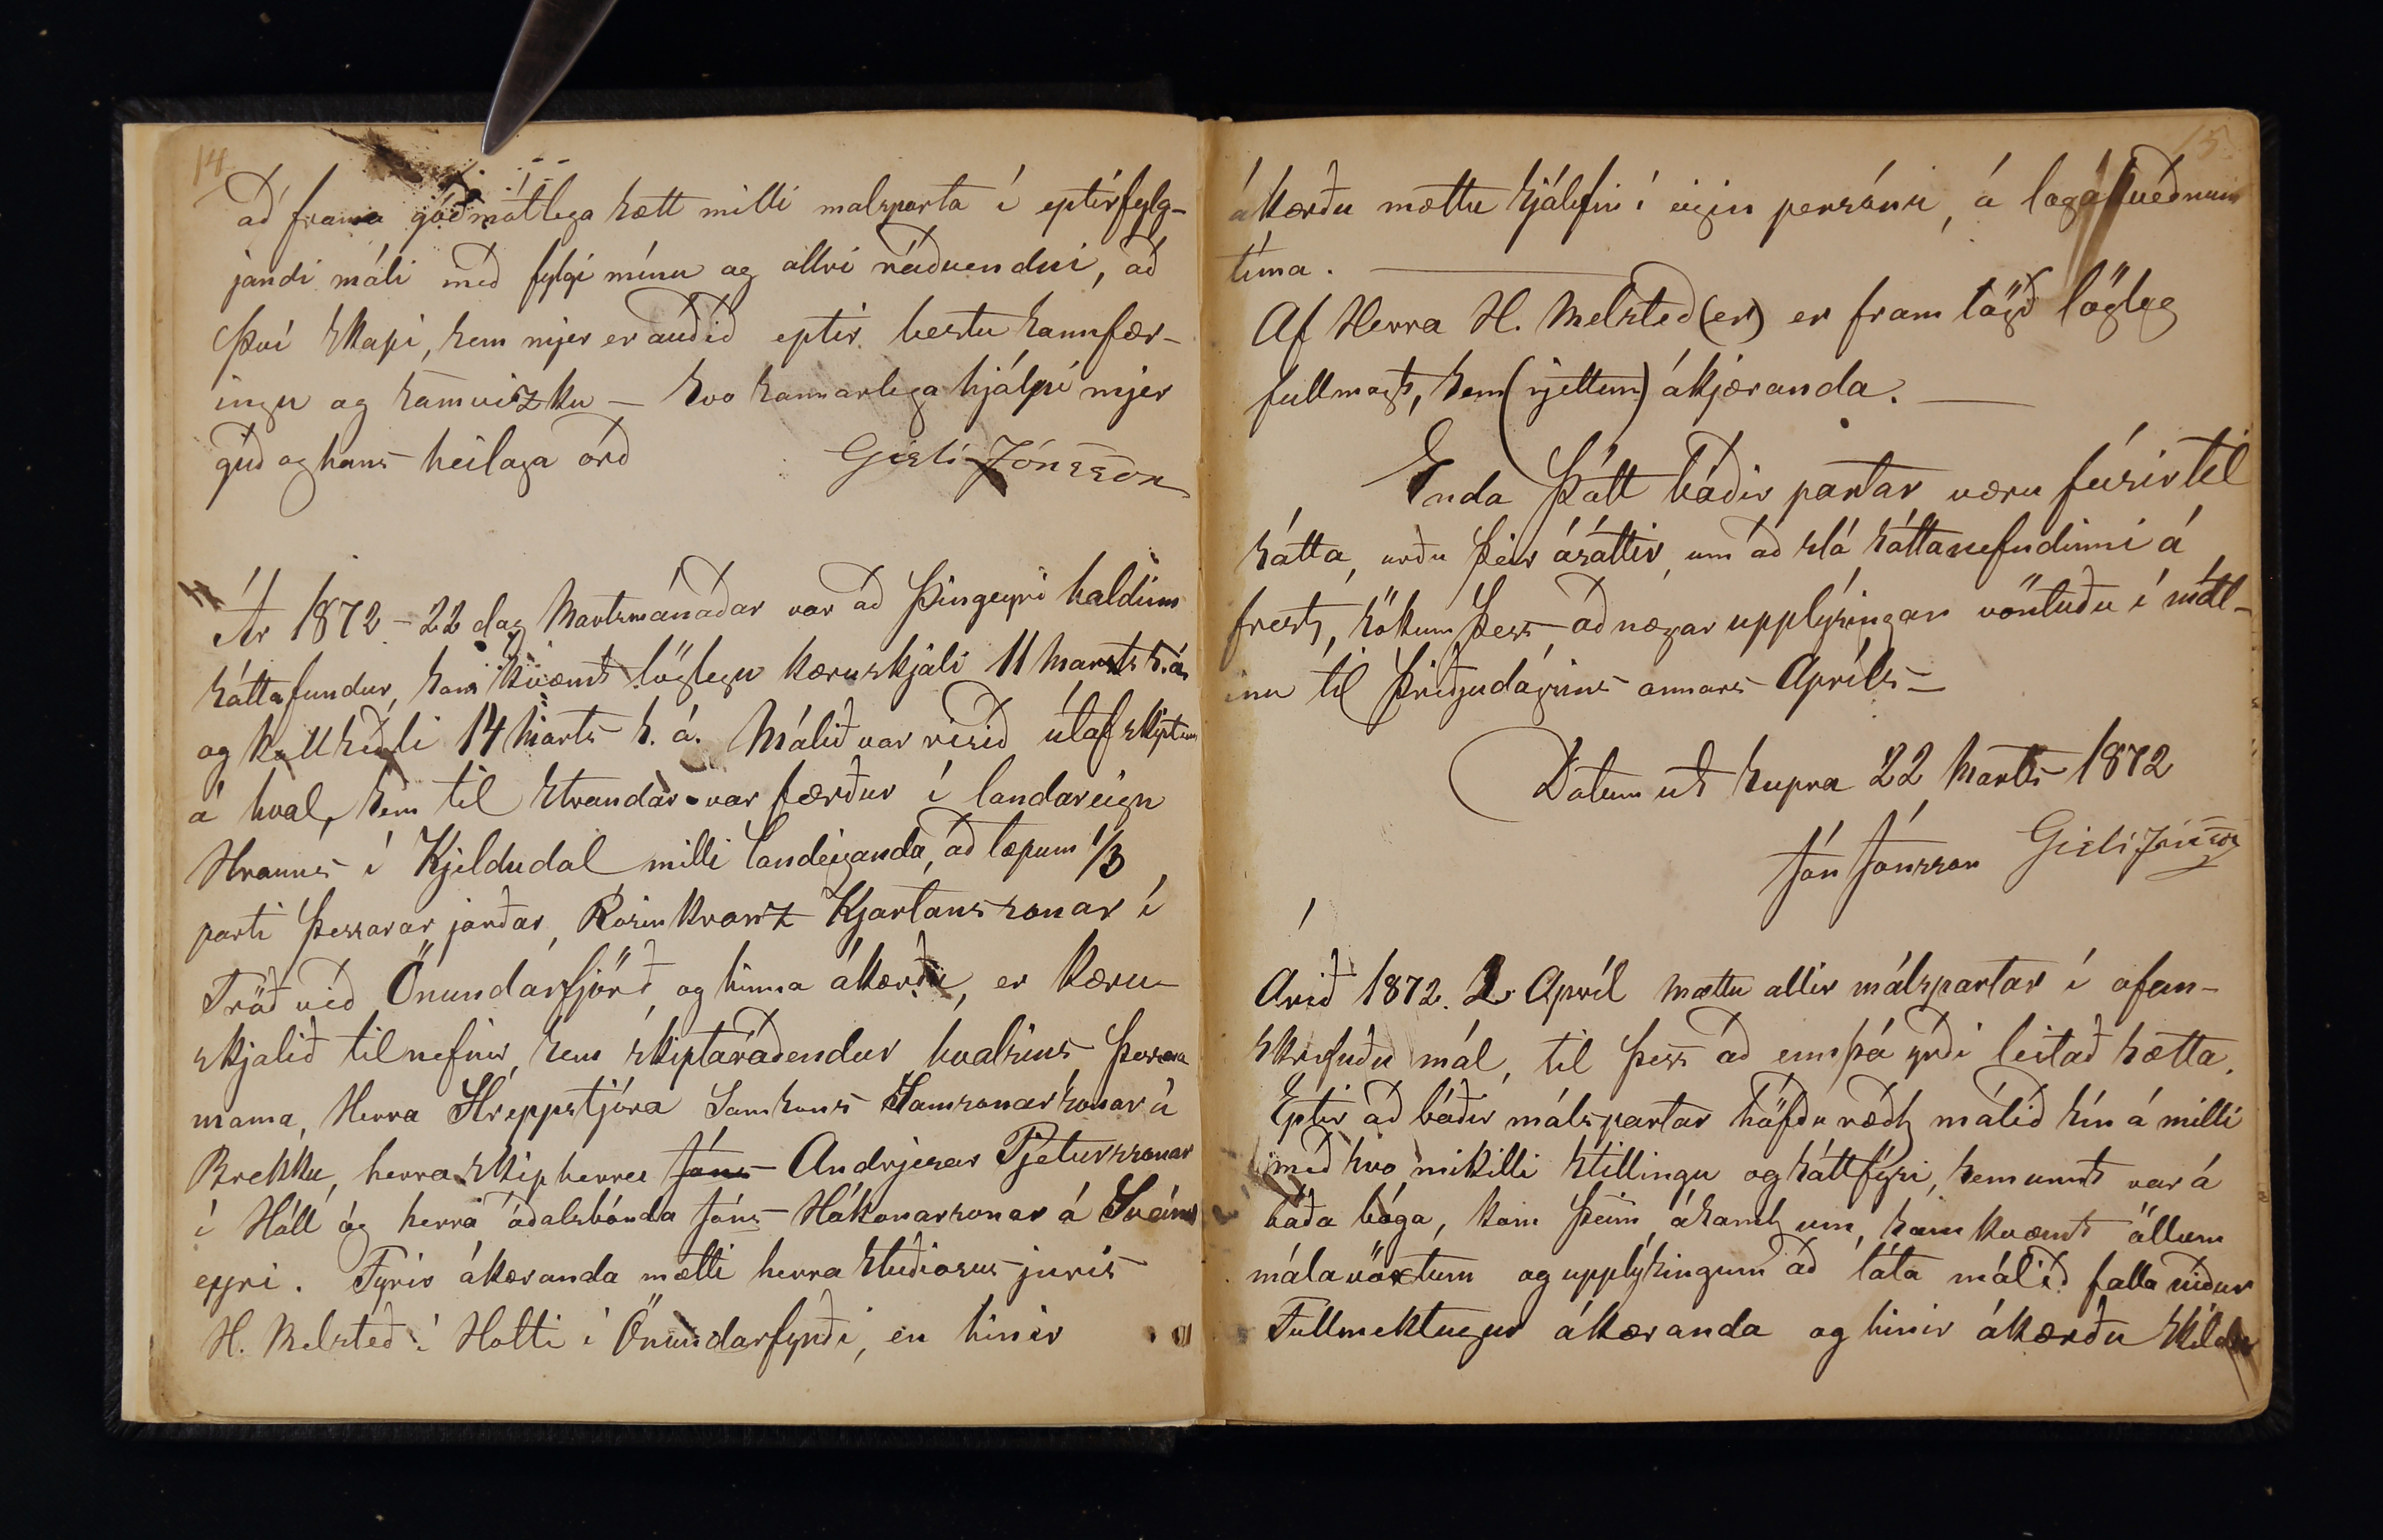 14
að frama góðmótlega sætt milli malsparta í eptirfylg-
jandi máli með fylgi mínu og allri ráðvendni, að
því skapi, sem mjer er auðið eptir bestu sannfær-
ingu og samvizku – svo sannarlega hjálpi mjer
guð og hans heilaga orð Gísli Jónsson
Ár 1872 – 22 dag Martsmánaðar var að Þingeyri haldinn
sáttafundur, samkvæmt löglegu kæruskjali 11 Marts h. á.
og kallseðli 14 Marts h. á. Málið var risið útaf skiptum
á hval, sem til strandar var færður í landareign
Hrauns í Kjeldudal milli landeiganda, að tæpum 1/3
parti þessarar jarðar, Rósinkranz Kjartanssonar í
Tröð við Önundarfjörð, og hinna ákærðu, er kæru-
skjalið tilnefnir, sem skiptaráðendur hvalsins, þessara
manna, Herra Hreppstjóra Samsons Samsonarsonar á
Brekku, herra skipherra Jóns Andrjesar Pjeturssonar
í Höll og herra óðalsbónda Jóns Hákonarsonar á Sveins
eyri. Fyrir ákæranda mætti herra studiosus juris
H. Melsteð í Holti í Önundarfyrði, en hinir
15
ákærðu mættu sjálfir í eigin persónu, á lagákveðnum
tíma.
Af Herra H. Melsteð (er) er fram lögð lögleg
fullmagt, sem (rjettum) ákjæranda.
Enda þótt báðir partar væru fúsir til
sátta, urðu þeir ásáttir, um að slá sáttanefndinni á
frest, sökum þess að nægar upplýsingar vöntuðu í mál-
inu til þriðjudagsins annars Apríls –
Datum ut supra 22 Marts 1872
Jón Jónsson Gísli Jónsson
Árið 1872. 2 Apríl mættu allir málspartar í ofan-
skrifuðu mál, til þess að ennþá yrði leitað sætta.
Eptir að báðir málspartar höfðu rædt málið sín á milli
með svo mikilli stillingu og sáttfýsi, sem unnt var á
báða bóga, kom þeim ásamt um, samkvæmt öllum
málavöxtum og upplýsingum að láta málið falla niður
Fullmektugur ákæranda og hinir ákærðu skildu